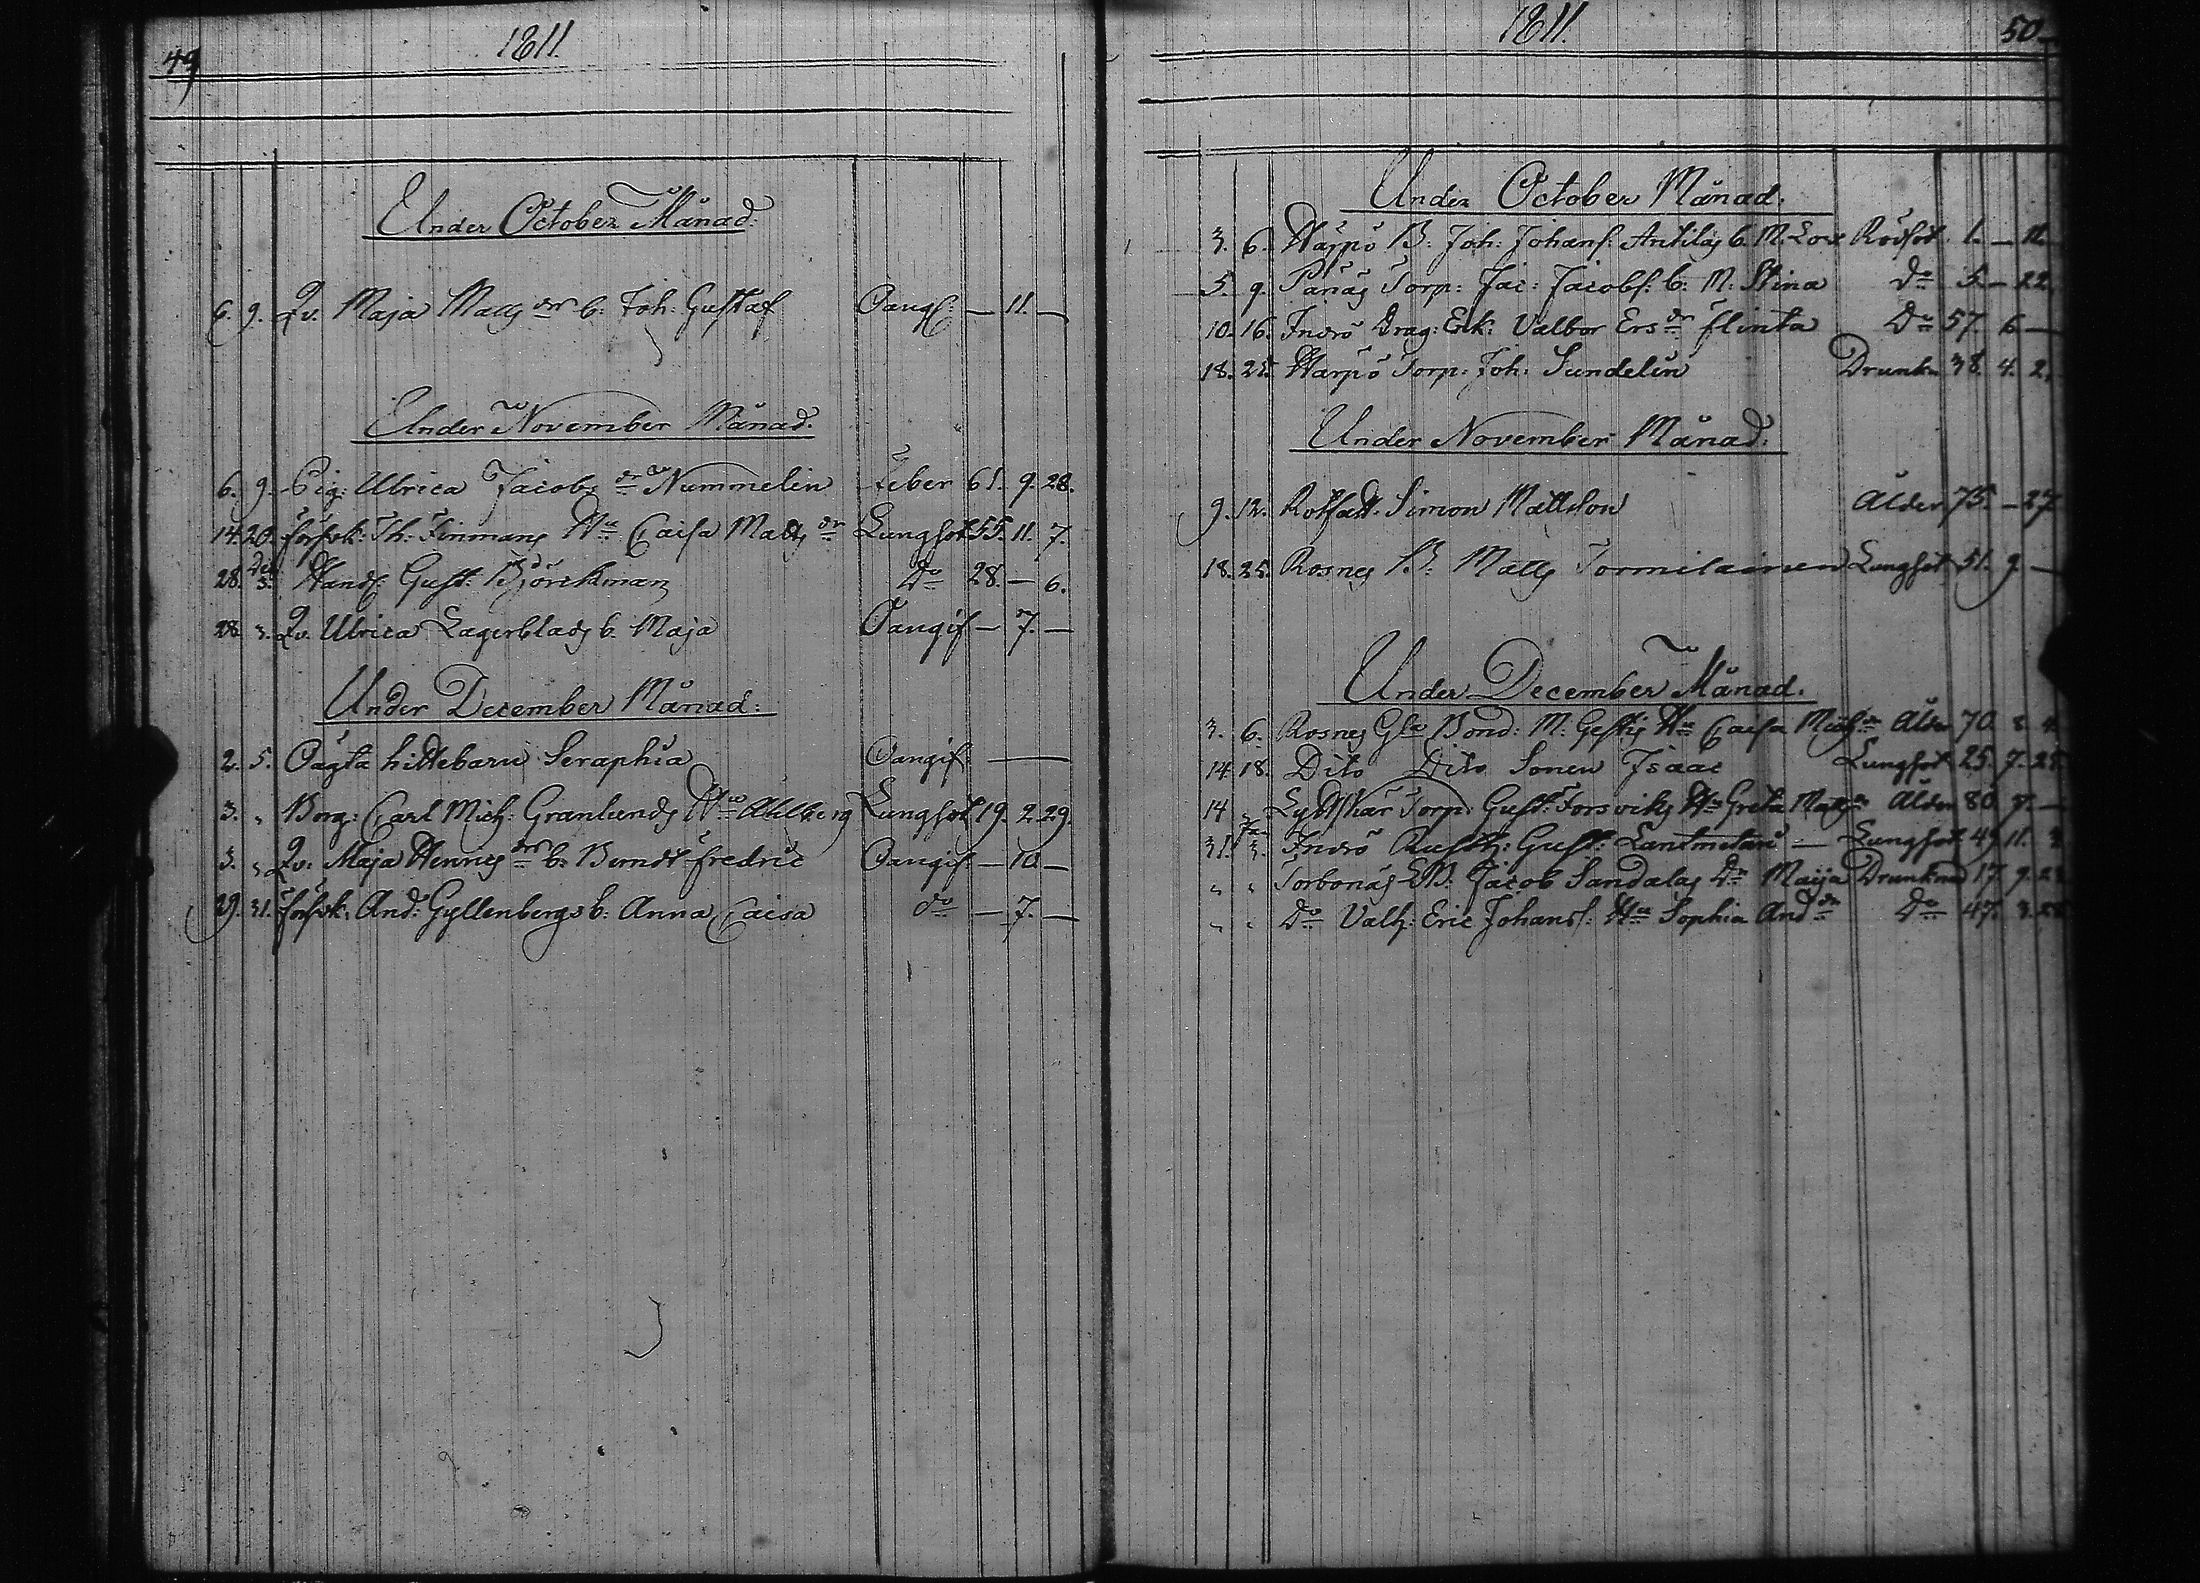 49
1811.
Under October Månad:
6. 9. Qv. Maja Matts dr b. Joh. Gustaf Oangf: — 11. —
Under November Månad.
6. 9. Pig: Ulrica Jacobs dr Nummelin Feber 61. 9. 28.
14. 20. Försvk: Th. Finmans Hu Caisa Matts dr Lungsot 55. 11. 7.
28. Dec 3. Handl: Gust: Björckman Do 28. — 6.
28. 3. Qv. Ulrica Lagerblads b. Maja Oangif — 7. —
Under December Månad:
2. 5. Oägta hittebarn Seraphia Oangif: —
3. „ Borg: Carl Mich: Granlunds Hu Ahlberg Lungsot 19. 2. 29.
3. „ Qv. Maja Hennes dr b. Berndt Fredric Oangif — 10. —
29. 31. Försvk: And: Gyllenbergs b. Anna Caisa do — 7. —
1811.
50
Under October Månad.
3. 6. Harpö B: Joh: Johans: Antilas b. M. Lov Rödsot 1. — 11.
5. 9. Panäs Torp: Jac: Jacobs: b: M: Stina Do 5. — 22.
10. 16. Insrö Drag: Eck: Valbor Ers dr Flinta Do 57. 6 —
18. 25. Harpö Torp: Joh: Sundelin Drunk 38. 4. 2.
Under November Månad.
9. 12. Rotfatt: Simon Mattsson Ålder 75. — 27
18. 25. Rosnes B: Matts Tormilainen Lungsot 51. 9 —
Under December Månad.
3. 6. Rosnes Gle Bond: M: Hu Caisa Mich dr Ålder 70.
14. 18. Dito Dito Sonen Isaac Lungsot 25. 7. 28.
14 „ Torp: Gust: Forsviks Hu Greta Matts dr Ålder 80. —
31. Jan 3. Insrö Rusth: Gust: Lungsot 49. 11. 3
„ „ Torbonäs B: Jacob Sandalas Dr Maija Drunknad 17. 9. 28
„ „ Do Valh: Eric Johans: Hu Sophia And dr Do 47. 3. 28